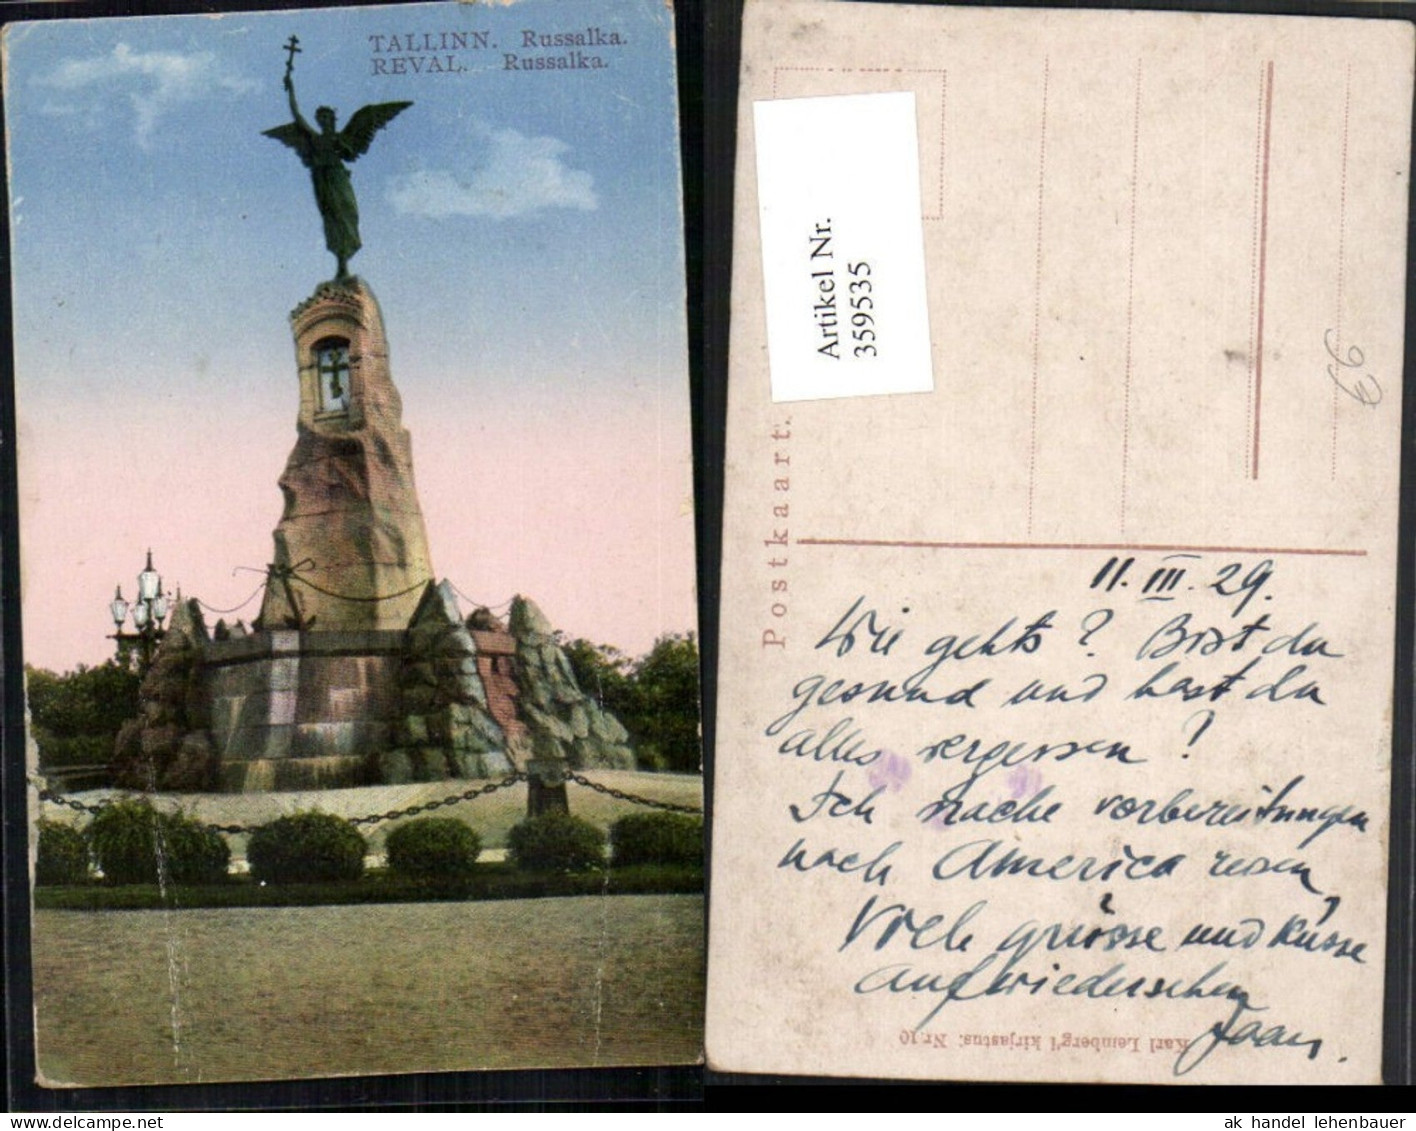 TALLINN. Russalka.
REVAL. Russalka.
Artikel Nr.
359535
Postkaart.
93
11. III. 29.
Wie gehts? Bist du
gesund und hast du
alles vergessen?
Ich mache vorbereitungen
nach America reisen,
Viele grüsse und Küsse
aufwiedersehen
Jaan.
Karl Leinberg'i kirjastus. Nr. 10
ak handel lehenbauer